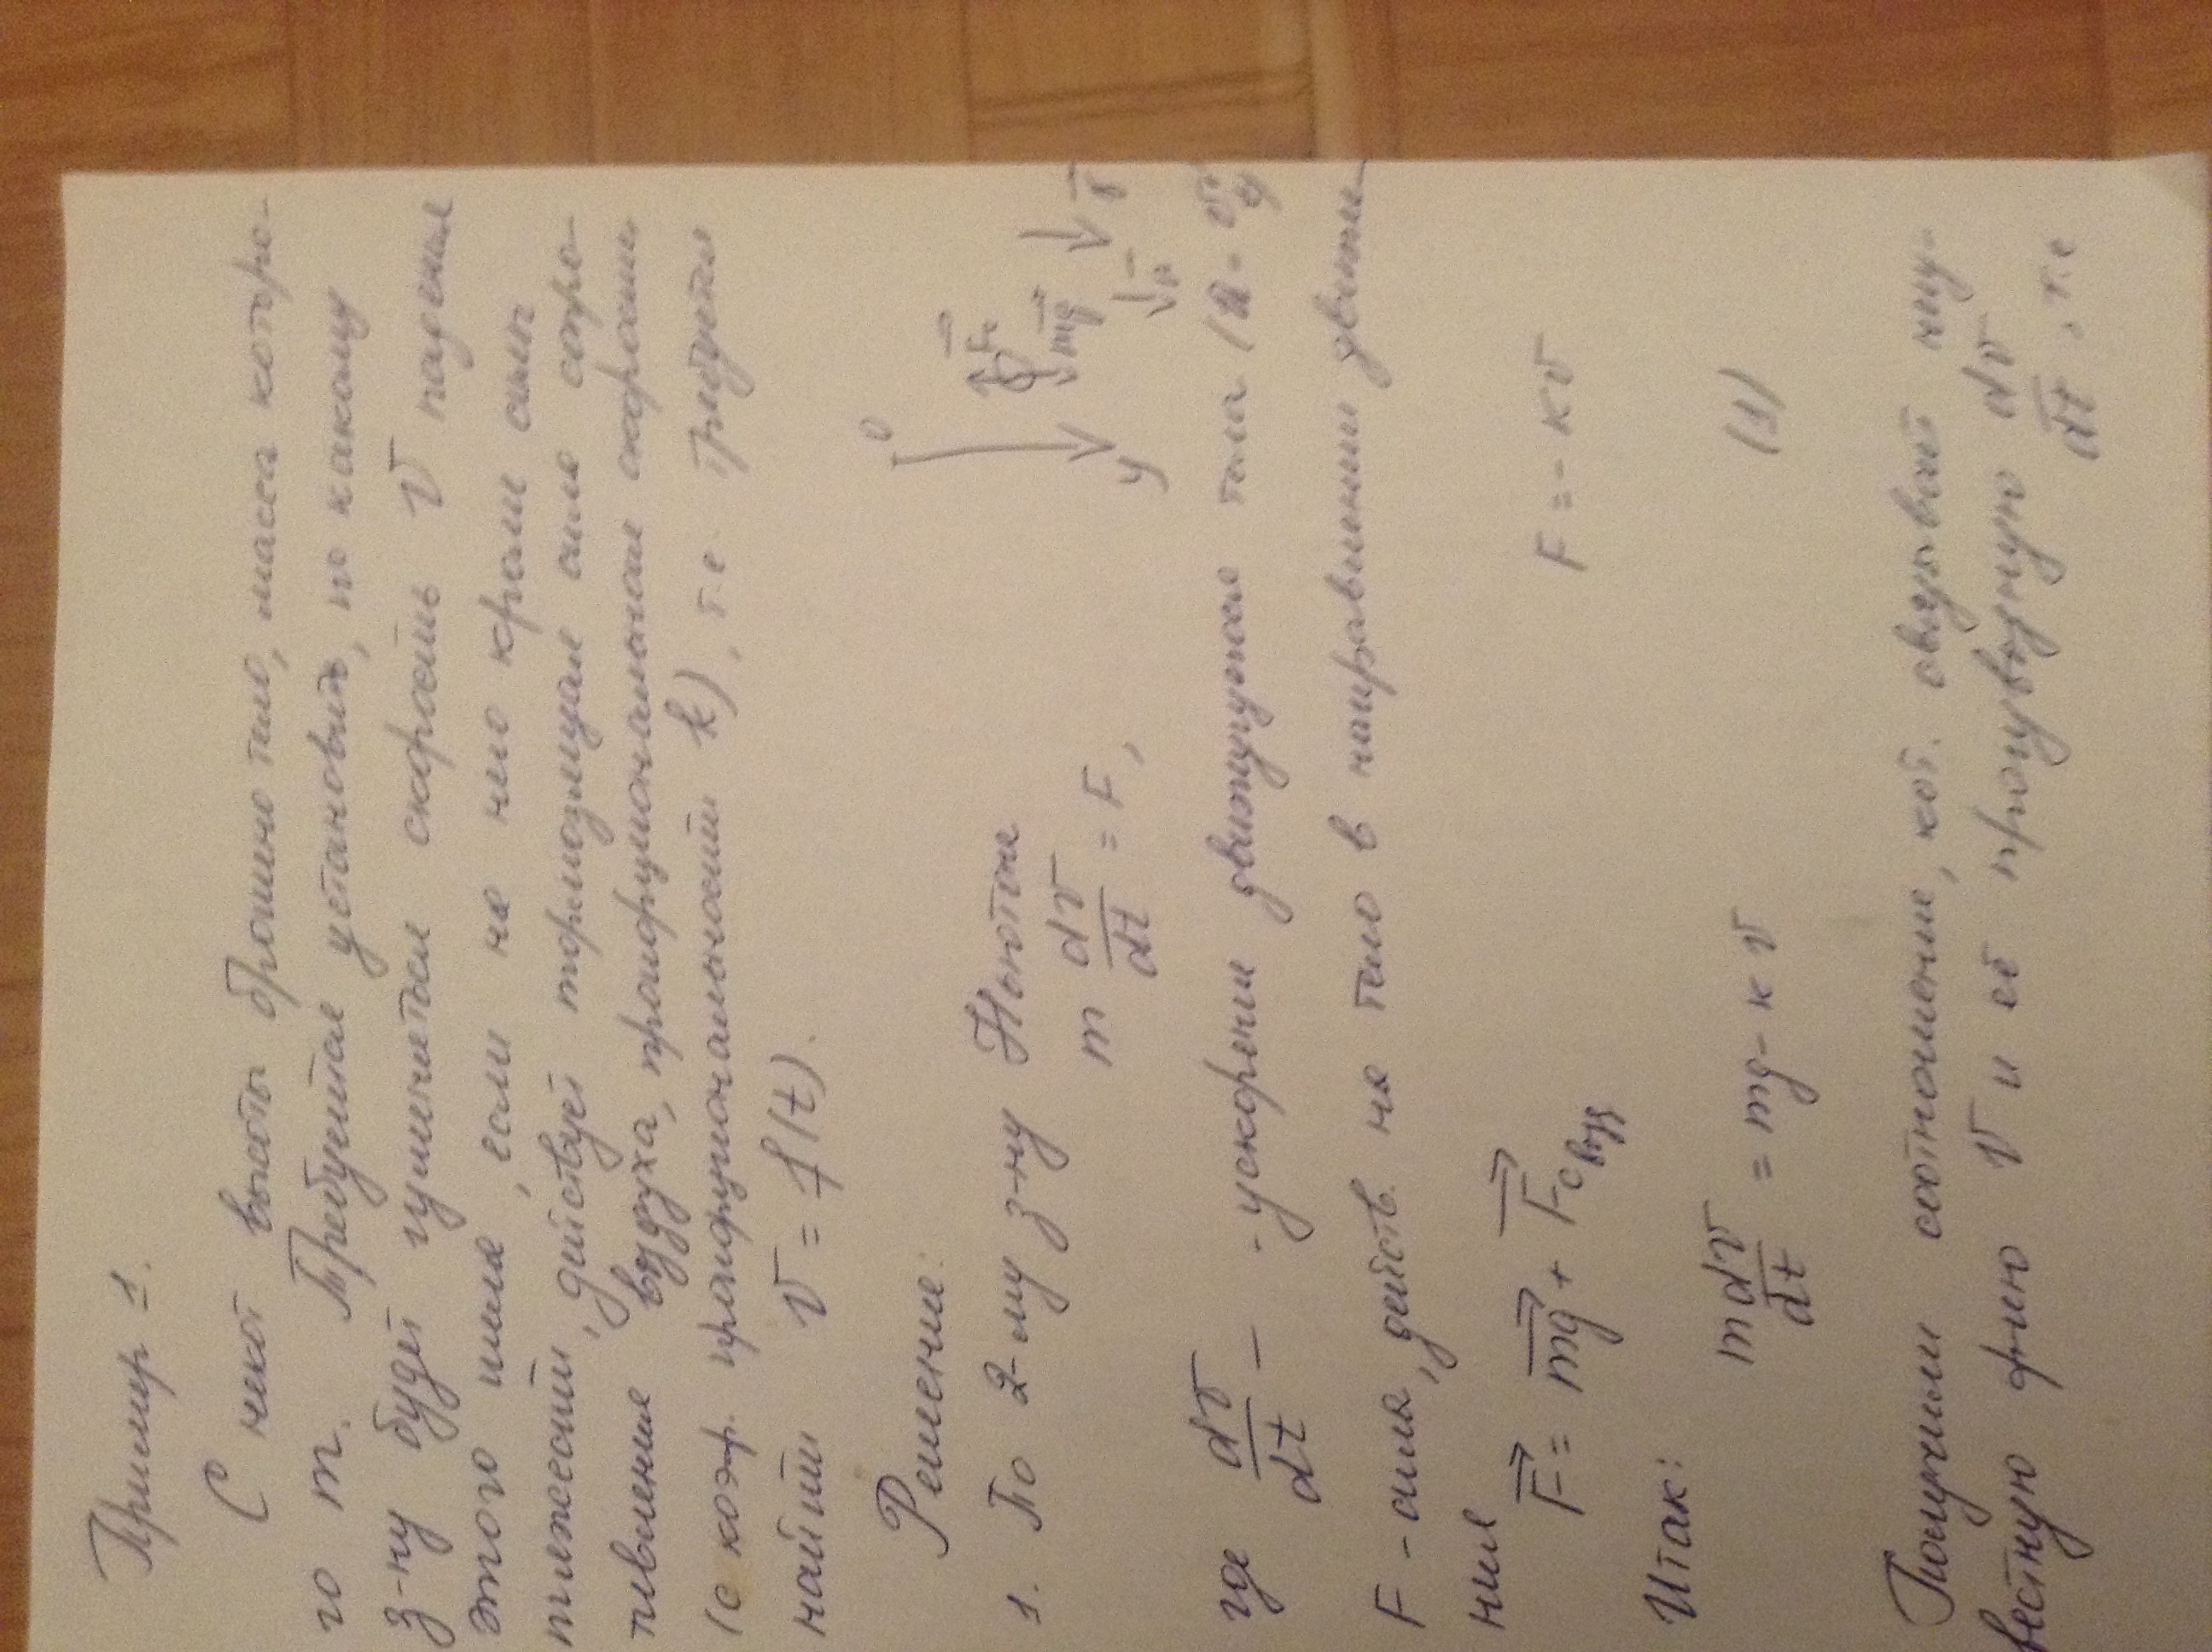 Пример 1.
С некот высоты брошено тело, масса которо-
го m. Требуется установить, по какому
з-ну будет изменяться скорость V падения
этого тела, если на него кроме силы
тяжести, действует тормозящая сила сопро-
тивления воздуха, пропорциональная скорости
(с коэф. пропорциональности k), т.е. требуется
найти V = f(t).
Решение:
0
Fc
mg
V
y
a
1. По 2-му з-ну Ньютона
m dV/dt = F,
где dV/dt — - ускорение движущегося тела (a =
F - сила, действ. на тело в направлении движе-
ния
F = mg + Fc возд F = - kV
Итак:
m dV/dt = mg - k V (1)
Получили соотношение, кот. связывает неиз-
вестную ф-ию V и её производную dV/dt, т.е